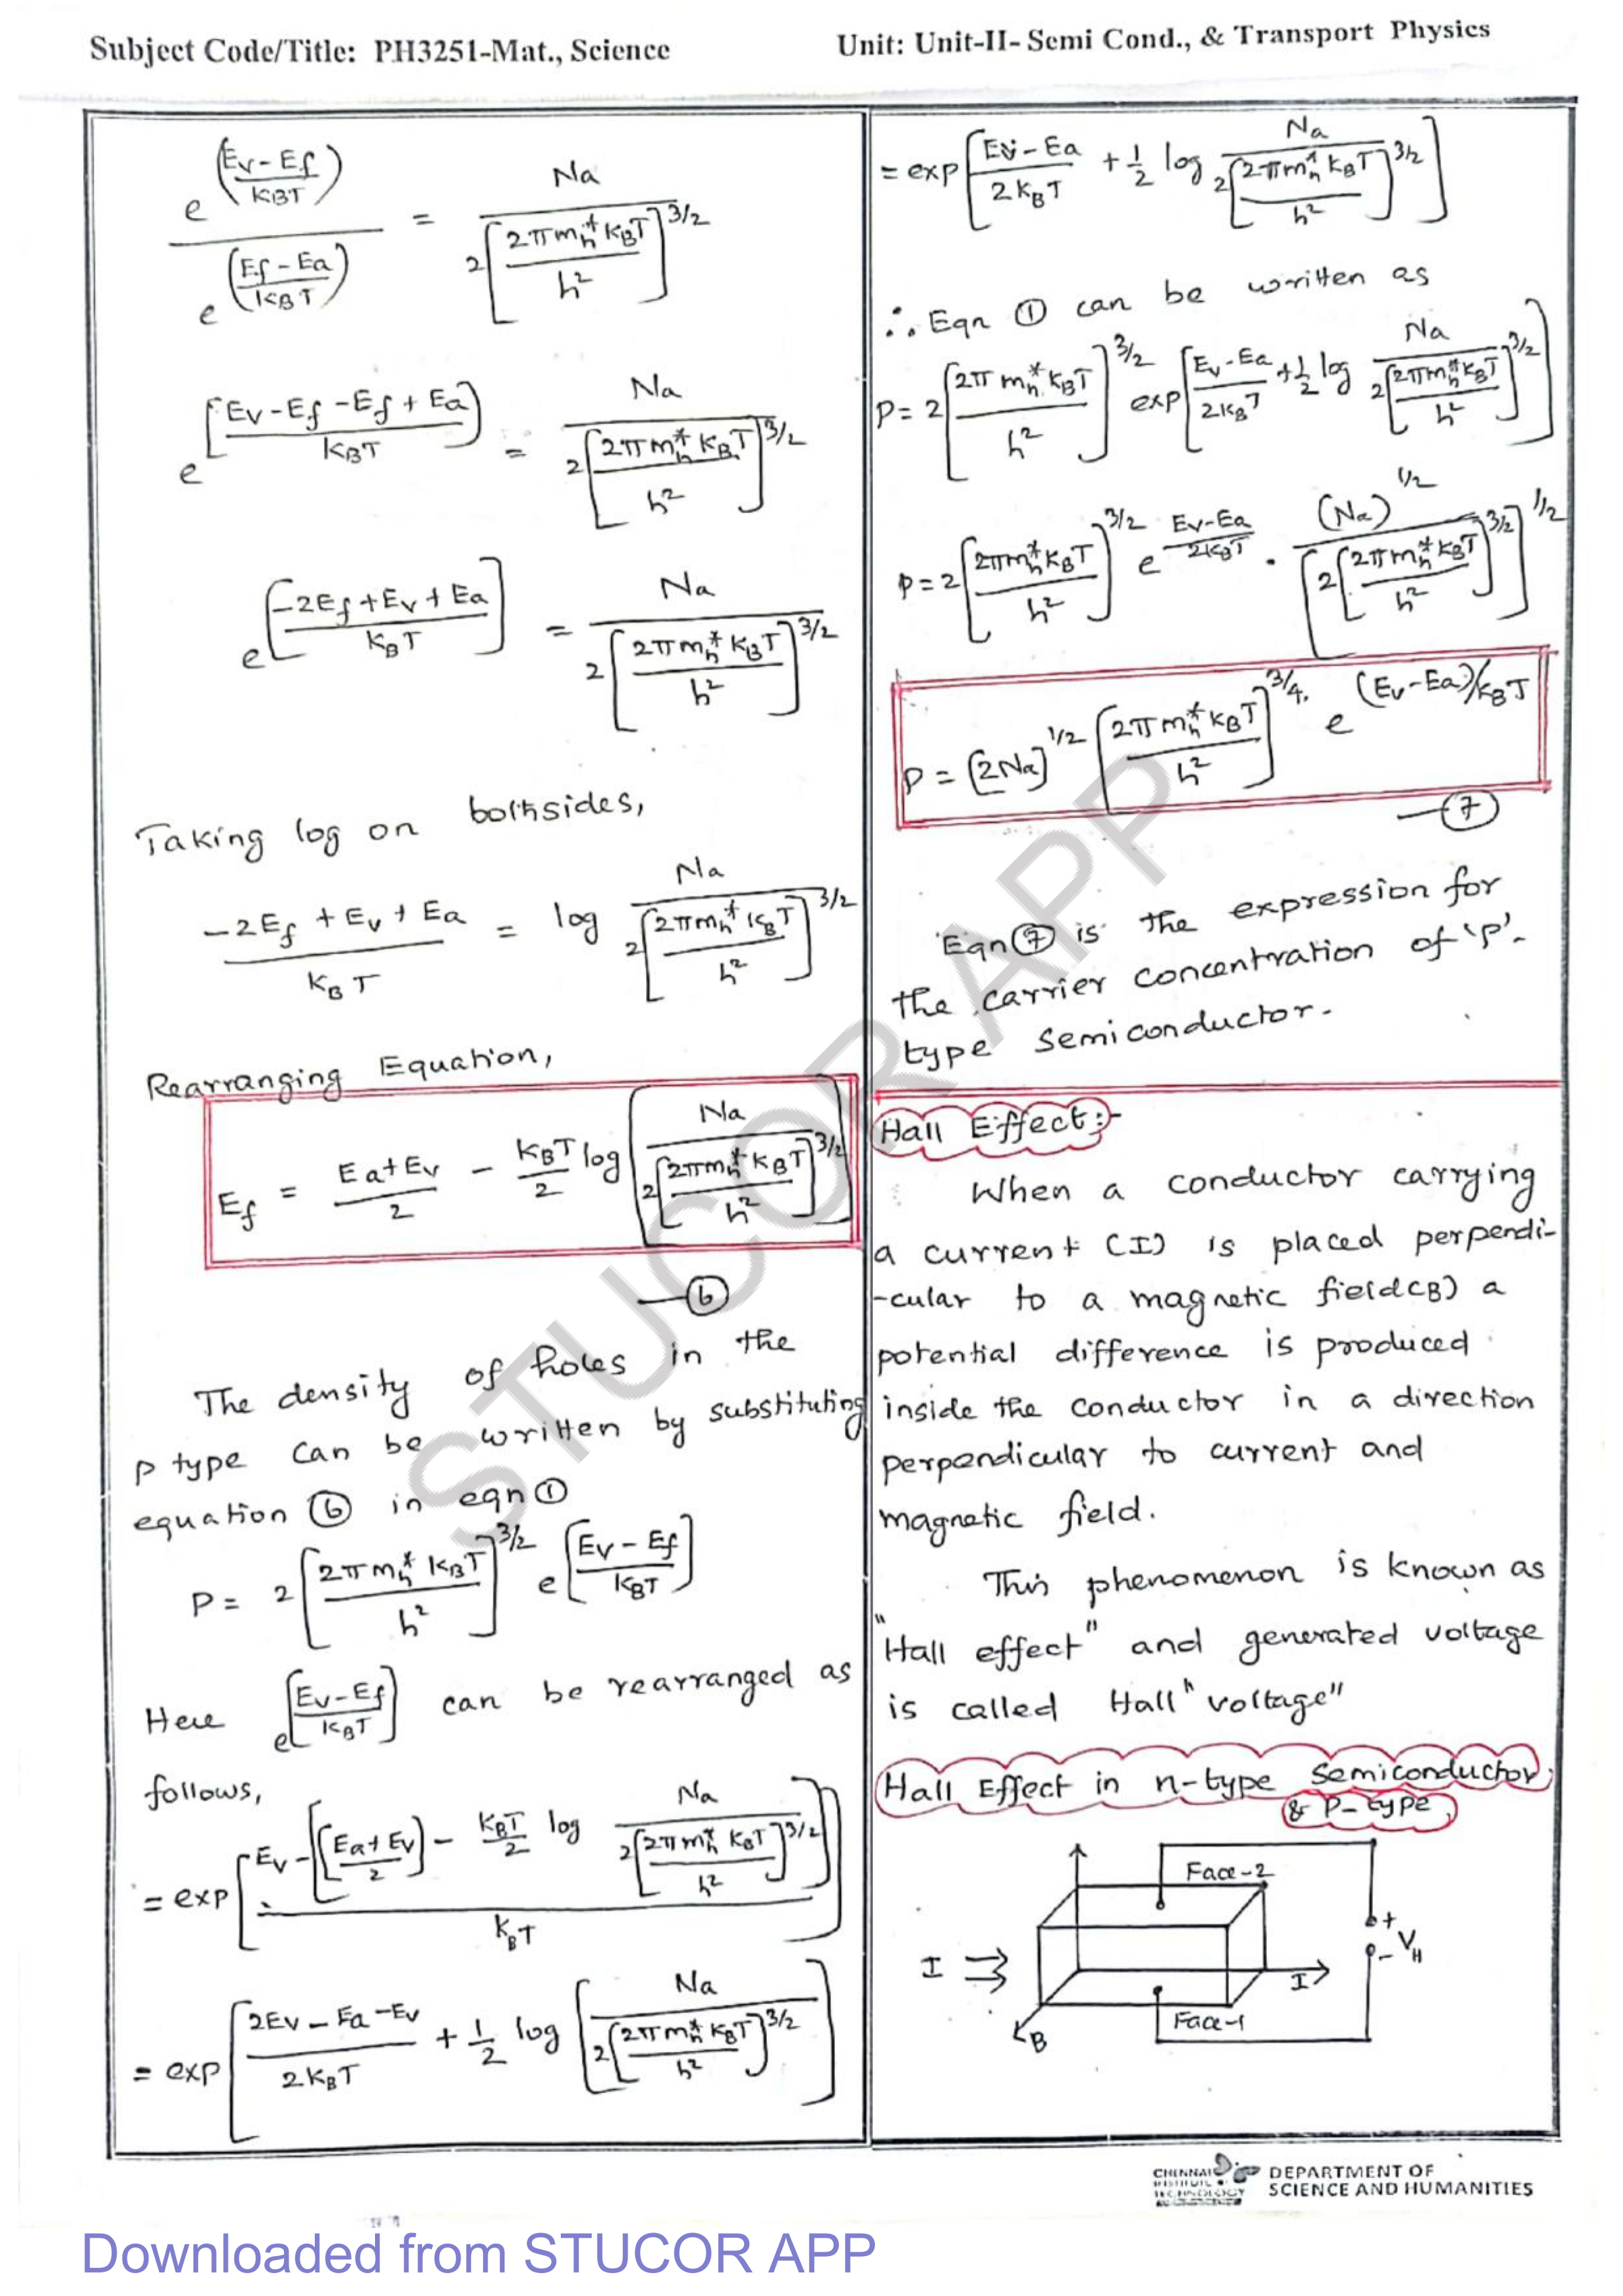 Subject Code/Title: PH3251-Mat., Science
Unit: Unit-II- Semi Cond., & Transport Physics
e^((Ev-Ef)/KBT) / e^((Ef-Ea)/KBT) = Na / 2[2πmh*KBT/h²]^3/2
e^[(Ev-Ef-Ef+Ea)/KBT] = Na / 2[2πmh*KBT/h²]^3/2
e^[(-2Ef+Ev+Ea)/KBT] = Na / 2[2πmh*KBT/h²]^3/2
Taking log on bothsides,
(-2Ef+Ev+Ea)/KBT = log Na / 2[2πmh*KBT/h²]^3/2
Rearranging Equation,
Ef = (Ea+Ev)/2 - KBT/2 log [Na / 2[2πmh*KBT/h²]^3/2]
—⑥
The density of holes in the
P type can be written by substituting
equation ⑥ in eqn ①
P = 2[2πmh*KBT/h²]^3/2 e^[(Ev-Ef)/KBT]
Here e^[(Ev-Ef)/KBT] can be rearranged as
follows,
= exp[(Ev-[(Ea+Ev)/2] - KBT/2 log Na / 2[2πmh*KBT/h²]^3/2)/KBT]
= exp[(2Ev-Ea-Ev)/2KBT + 1/2 log [Na / 2[2πmh*KBT/h²]^3/2]]
= exp[(Ev-Ea)/2KBT + 1/2 log Na / 2[2πmh*KBT/h²]^3/2]
∴ Eqn ① can be written as
P = 2[2πmh*KBT/h²]^3/2 exp[(Ev-Ea)/2KBT + 1/2 log Na / 2[2πmh*KBT/h²]^3/2]
P = 2[2πmh*KBT/h²]^3/2 e^(Ev-Ea)/2KBT . (Na)^1/2 / [2[2πmh*KBT/h²]^3/2]^1/2
P = (2Na)^1/2 [2πmh*KBT/h²]^3/4. e^(Ev-Ea)/KBT
—⑦
Eqn ⑦ is the expression for
the carrier concentration of 'P'-
type semiconductor.
Hall Effect:-
When a conductor carrying
a current (I) is placed perpendi-
-cular to a magnetic field(B) a
potential difference is produced
inside the conductor in a direction
perpendicular to current and
magnetic field.
This phenomenon is known as
"Hall effect" and generated voltage
is called Hall "voltage"
Hall Effect in n-type semiconductor
& P-type
Face-2
+
- VH
I
I
Face-1
B
STUCOR APP
CHENNAI
INSTITUTE OF
TECHNOLOGY
DEPARTMENT OF
SCIENCE AND HUMANITIES
Downloaded from STUCOR APP